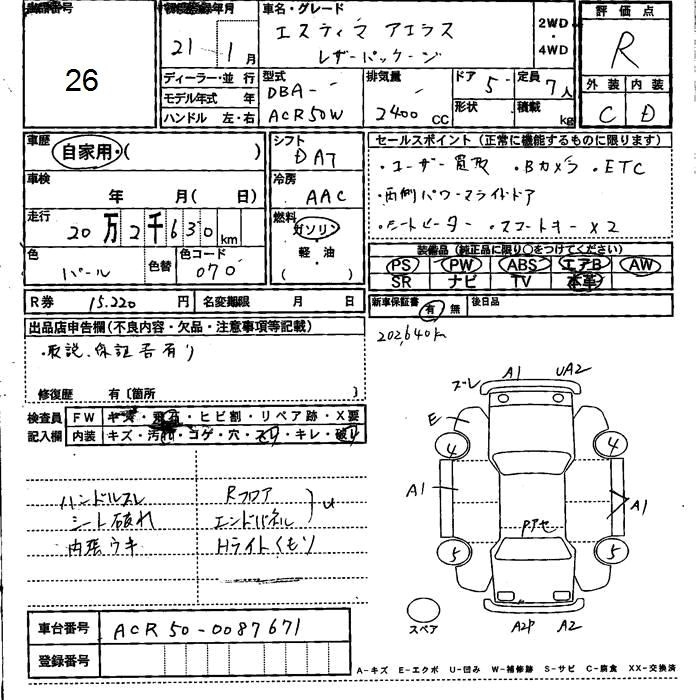 出品番号 26
初度登録年月 21 1月
ディーラー・並行
モデル年式 年
ハンドル 左・右
車名・グレード
エスティマ アエラス
レザーパッケージ
2WD・4WD
型式 DBA-
ACR50W
排気量 2400 CC
ドア 5
形状
定員 7人
積載 kg
評価点 R
外装 内装
C D
車歴 自家用・( )
車検 年 月(日)
走行 20万2千630km
色 パール 色替 色コード 070
シフト DA7
冷房 AAC
燃料 ガソリン
軽・油
( )
セールスポイント(正常に機能するものに限ります)
・ユーザー買取 ・Bカメラ ・ETC
・両側パワースライドドア
・シートヒーター ・スマートキー×2
装備品(純正品に限り○をつけてください)
PS PW ABS エアB AW
SR ナビ TV 本革
R券 15,220円 名変期限 月 日
新車保証書 有 無 後日品
202,640k
出品店申告欄(不良内容・欠品・注意事項等記載)
・取説、保証書有り
修復歴 有〔箇所 〕
検査員 FW キズ・飛石・ヒビ割・リペア跡・X要
記入欄 内装 キズ・汚れ・コゲ・穴・スリ・キレ・破れ
ハンドルスレ Rフロア
シート破れ エンドパネル U
内張ウキ Hライトくもり
ズレ A1 UA2
E
4 4
A1 A1
Pアセ
5 5
スペア A2P A2
車台番号 ACR50-0087671
登録番号
A-キズ E-エクボ U-凹み W-補修跡 S-サビ C-腐食 XX-交換済